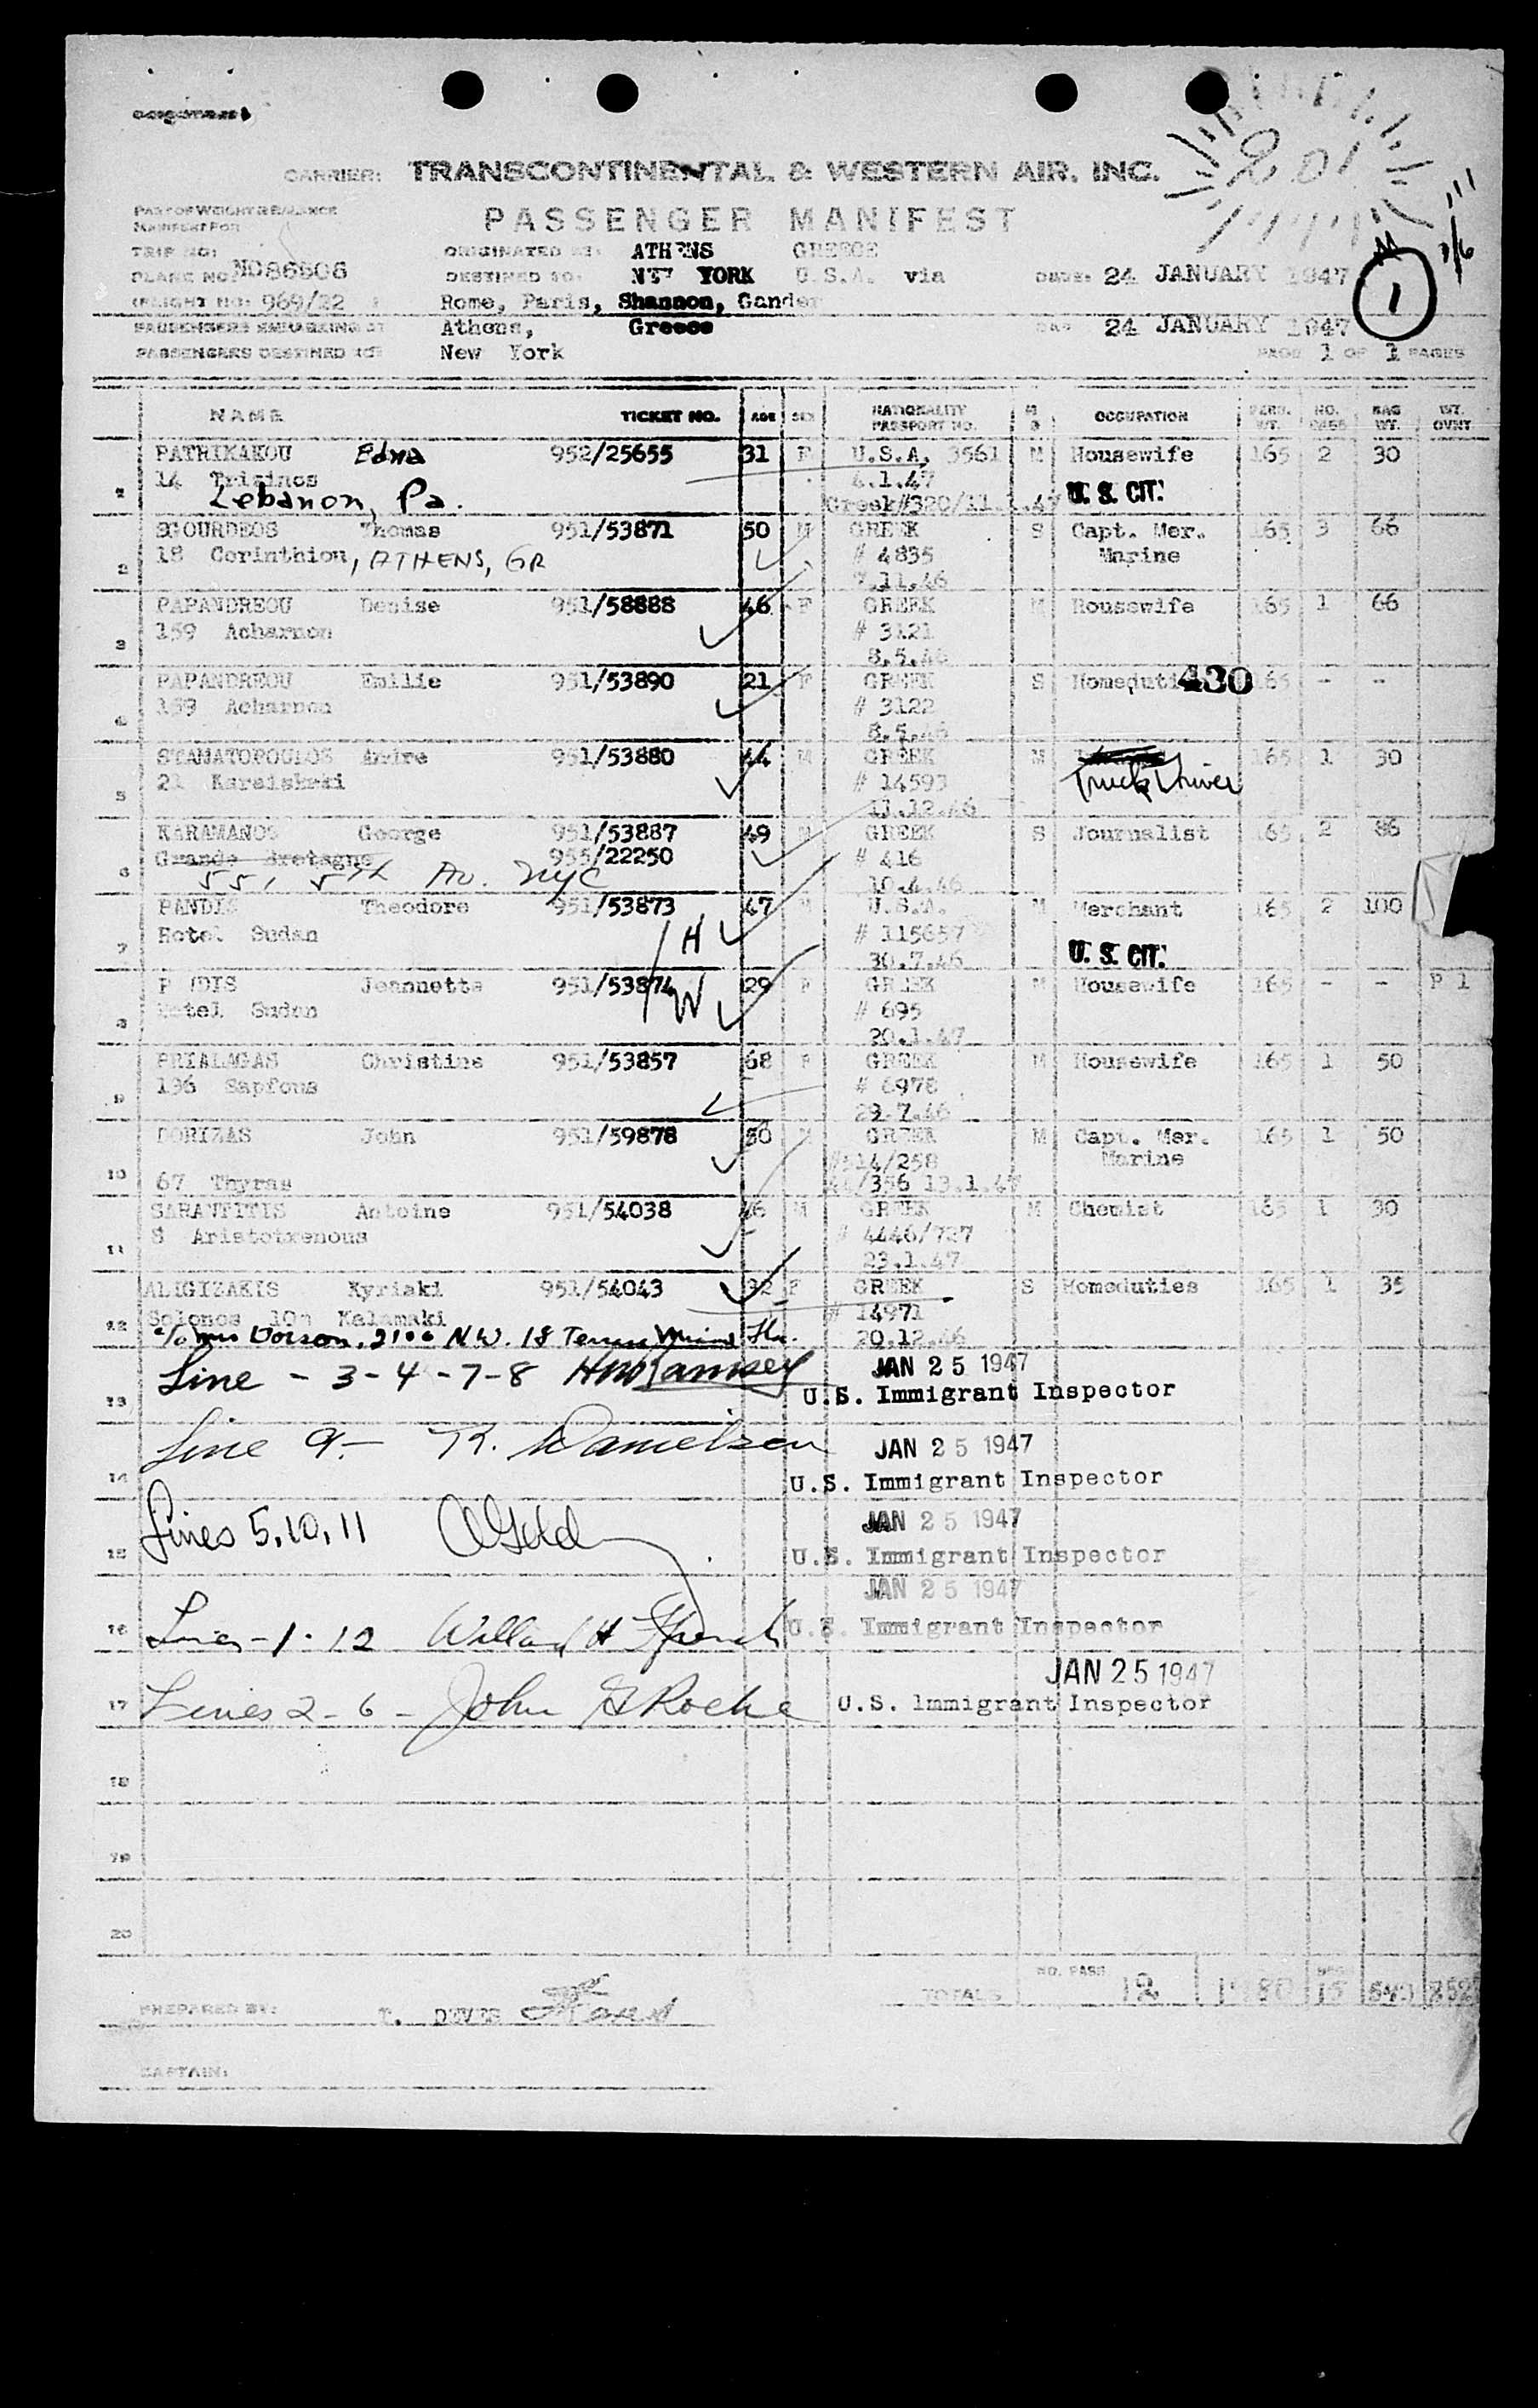 CARRIER: TRANSCONTINENTAL & WESTERN AIR, INC.
801
PART OF WEIGHT & BALANCE
MANIFEST FOR
PASSENGER MANIFEST
TRIP NO:
ORIGINATED AT: ATHENS GREECE
PLANE NO: NC86506
DESTINED TO: NEW YORK U.S.A. via
DATE: 24 JANUARY 1947
FLIGHT NO: 969/22
Rome, Paris, Shannon, Gander
1
PASSENGERS EMBARKING AT Athens, Greece
24 JANUARY 1947
PASSENGERS DESTINED TO New York
PAGE 1 OF 1 PAGES
NAME TICKET NO. AGE SEX NATIONALITY PASSPORT NO. M S OCCUPATION PERS. WT. NO. BAGS BAG WT. WT. OVNT
PATRIKAKOU Edna 952/25655 31 F U.S.A. 3561 M Housewife 165 2 30
14 Trisinos 4.1.47
1 Lebanon, Pa. Greek#320/11.1.47 U.S. CIT.
SGOURDEOS Thomas 951/53871 50 M GREEK S Capt. Mer. 165 3 66
18 Corinthiou, ATHENS, GR # 4835 Marine
2 7.11.46
PAPANDREOU Denise 951/58888 46 F GREEK M Housewife 165 1 66
159 Acharnon # 3121
3 8.5.46
PAPANDREOU Emilie 951/53890 21 F GREEK S Homeduties 430 165 - --
159 Acharnon # 3122
4 8.5.46
STAMATOPOULOS Andre 951/53880 44 M GREEK M 165 1 30
21 Karaiskaki # 14593 Truck Driver
5 11.12.46
KARAMANOS George 951/53887 49 M GREEK S Journalist 165 2 86
Grande Bretagne 955/22250 # 416
6 551 5th Av. NYC 10.4.46
PANDIS Theodore 951/53873 47 M U.S.A. M Merchant 165 2 100
Hotel Sudan H # 115657
7 30.7.46 U.S. CIT.
P NDIS Jeannette 951/53874 29 F GREEK M Housewife 165 - - P 1
Hotel Sudan W # 695
8 20.1.47
PRIALAGAS Christine 951/53857 68 F GREEK M Housewife 165 1 50
136 Sapfous # 6978
9 29.7.46
DORIZAS John 951/59878 50 M GREEK M Capt. Mer. 165 1 50
#514/258 Marine
10 67 Thyras 44/356 13.1.47
SARANTITIS Antoine 951/54038 46 M GREEK M Chemist 165 1 30
8 Aristoixenous # 4446/727
11 23.1.47
ALIGIZAKIS Kyriaki 951/54043 32 F GREEK S Homeduties 165 1 35
Solonos 10m Kalamaki # 14971
12 c/o Mrs Dorson, 2100 N.W. 18 Terrace Miami Fla. 20.12.46
Line - 3-4-7-8 HW Ramsey JAN 25 1947
13 U.S. Immigrant Inspector
Line 9 - R. Danielsen JAN 25 1947
14 U.S. Immigrant Inspector
Lines 5, 10, 11 JAN 25 1947
15 U.S. Immigrant Inspector
JAN 25 1947
16 Lines - 1 - 12 Willard H U.S. Immigrant Inspector
JAN 25 1947
17 Lines 2 - 6 - John G Roche U.S. Immigrant Inspector
18
19
20
TOTALS NO. PASS 12 1980 15
PREPARED BY:
CAPTAIN: